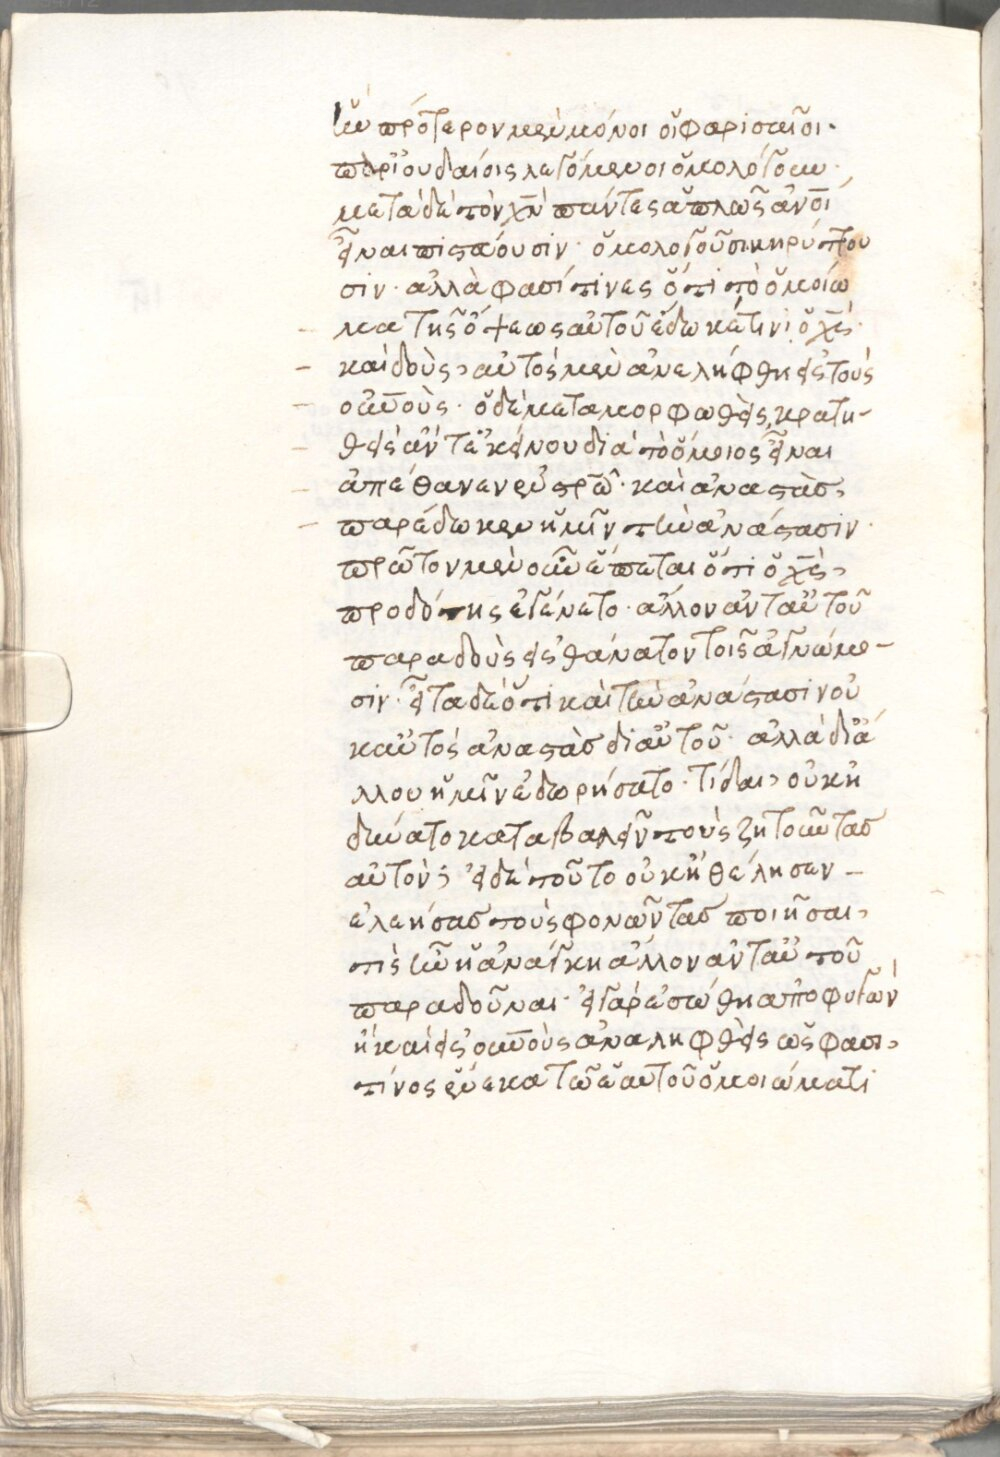 ἣν πρότερον μὲν μόνοι οἱ φαρισαῖοι·
παρ ἰουδαίοις λεγόμενοι ὁμολόγουν·
μετὰ δὲ τὸν χ̅ν̅ πάντες ἁπλῶς ἄν̅οι
εἶναι πιστεύουσιν· ὁμολογοῦσι κηρύττου
σιν· ἀλλὰ φασί τινες ὅτι τὸ ὁμοίω
μα τῆς ὄψεως αὐτοῦ ἔδωκέ τινι ὁ χ̅ς̅·
καὶ δοὺς, αὐτὸς μὲν ἀνελήφθη εἰς τοὺς
οὐ̅νοὺς· ὁ δὲ μεταμορφωθεὶς, κρατη-
θεὶς ἀντ ἐκείνου διὰ τὸ ὅμοιος εἶναι
ἀπέθανεν ἐν σ̅ρῷ· καὶ ἀναστὰς,
παρέδωκεν ἡμῖν τὴν ἀνάστασιν·
πρῶτον μὲν οὖν ἕπεται ὅτι ὁ χ̅ς̅,
προδότης ἐγένετο· ἄλλον ἀντ αὐτοῦ
παραδοὺς εἰς θάνατον τοῖς ἀγνώμο-
σιν· εἶτα δὲ ὅτι καὶ τὴν ἀνάστασιν οὐ
κ αὐτὸς ἀναστὰς δι αὐτοῦ· ἀλλὰ δι ἄ
λλου ἡμῖν ἐδωρήσατο· τί δαι, οὐκ ἠ
δύνατο καταβαλεῖν τοὺς ζητοῦντας
αὐτόν; εἰ δὲ τοῦτο οὐκ ἠθέλησεν -
ἐλεήσας τοὺς φονῶντας ποιῆσαι,
τίς ἦν ἡ ἀνάγκη ἄλλον ἀντ αὐτοῦ
παραδοῦναι· εἰ γὰρ ἐσώθη ἀποφυγὼν
ἢ καὶ εἰς οὐ̅νοὺς ἀναληφθεὶς ὥς φασι,
τίνος ἕνεκα τῷ ἑαυτοῦ ὁμοιώματι